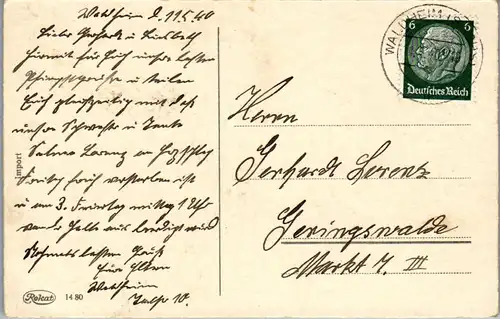 Waldheim d. 11.5.40
Liebe Gerhardt u Liesbeth
hiermit für Euch unsre besten
Pfingstgrüße u teilen
Euch gleichzeitig mit daß
unsre Schwester u Tante
Selma Lorenz an
Freitag früh verstorben ist
u am 3. Feiertag mittag 1 Uhr
von der Halle aus beerdigt wird
Nochmals besten Gruß
Eure Eltern
Waldheim
10.
Import
Rokat 1480
WALDHEIM
6 6
Deutsches Reich
Herrn
Gerhardt Lorenz
Geringswalde
Markt 7. III